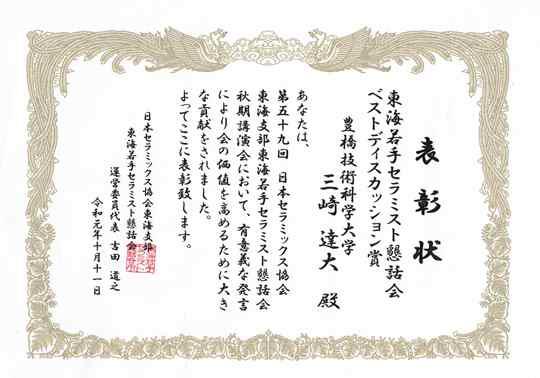 表彰状
東海若手セラミスト懇話会
ベストディスカッション賞
豊橋技術科学大学
三崎達大 殿
あなたは、
第五十九回 日本セラミックス協会
東海支部東海若手セラミスト懇話会
秋期講演会において、有意義な発言
により会の価値を高めるために大き
な貢献をされました。
よってここに表彰致します。
日本セラミックス協会東海支部
東海若手セラミスト懇話会
運営委員代表 吉田 道之
令和元年十月十一日